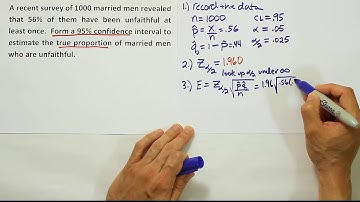 A recent survey of 1000 married men revealed
that 56% of them have been unfaithful at
least once. Form a 95% confidence interval to
estimate the true proportion of married men
who are unfaithful.
1.) record the data
n=1000 CL=.95
p̂ = x/n = .56 α = .05
q̂ = 1-p̂ = .44 α/2 = .025
2.) Zα/2 = 1.960
look up α/2 under ∞
3.) E = Zα/2 √p̂q̂/n = 1.96 √.56(.